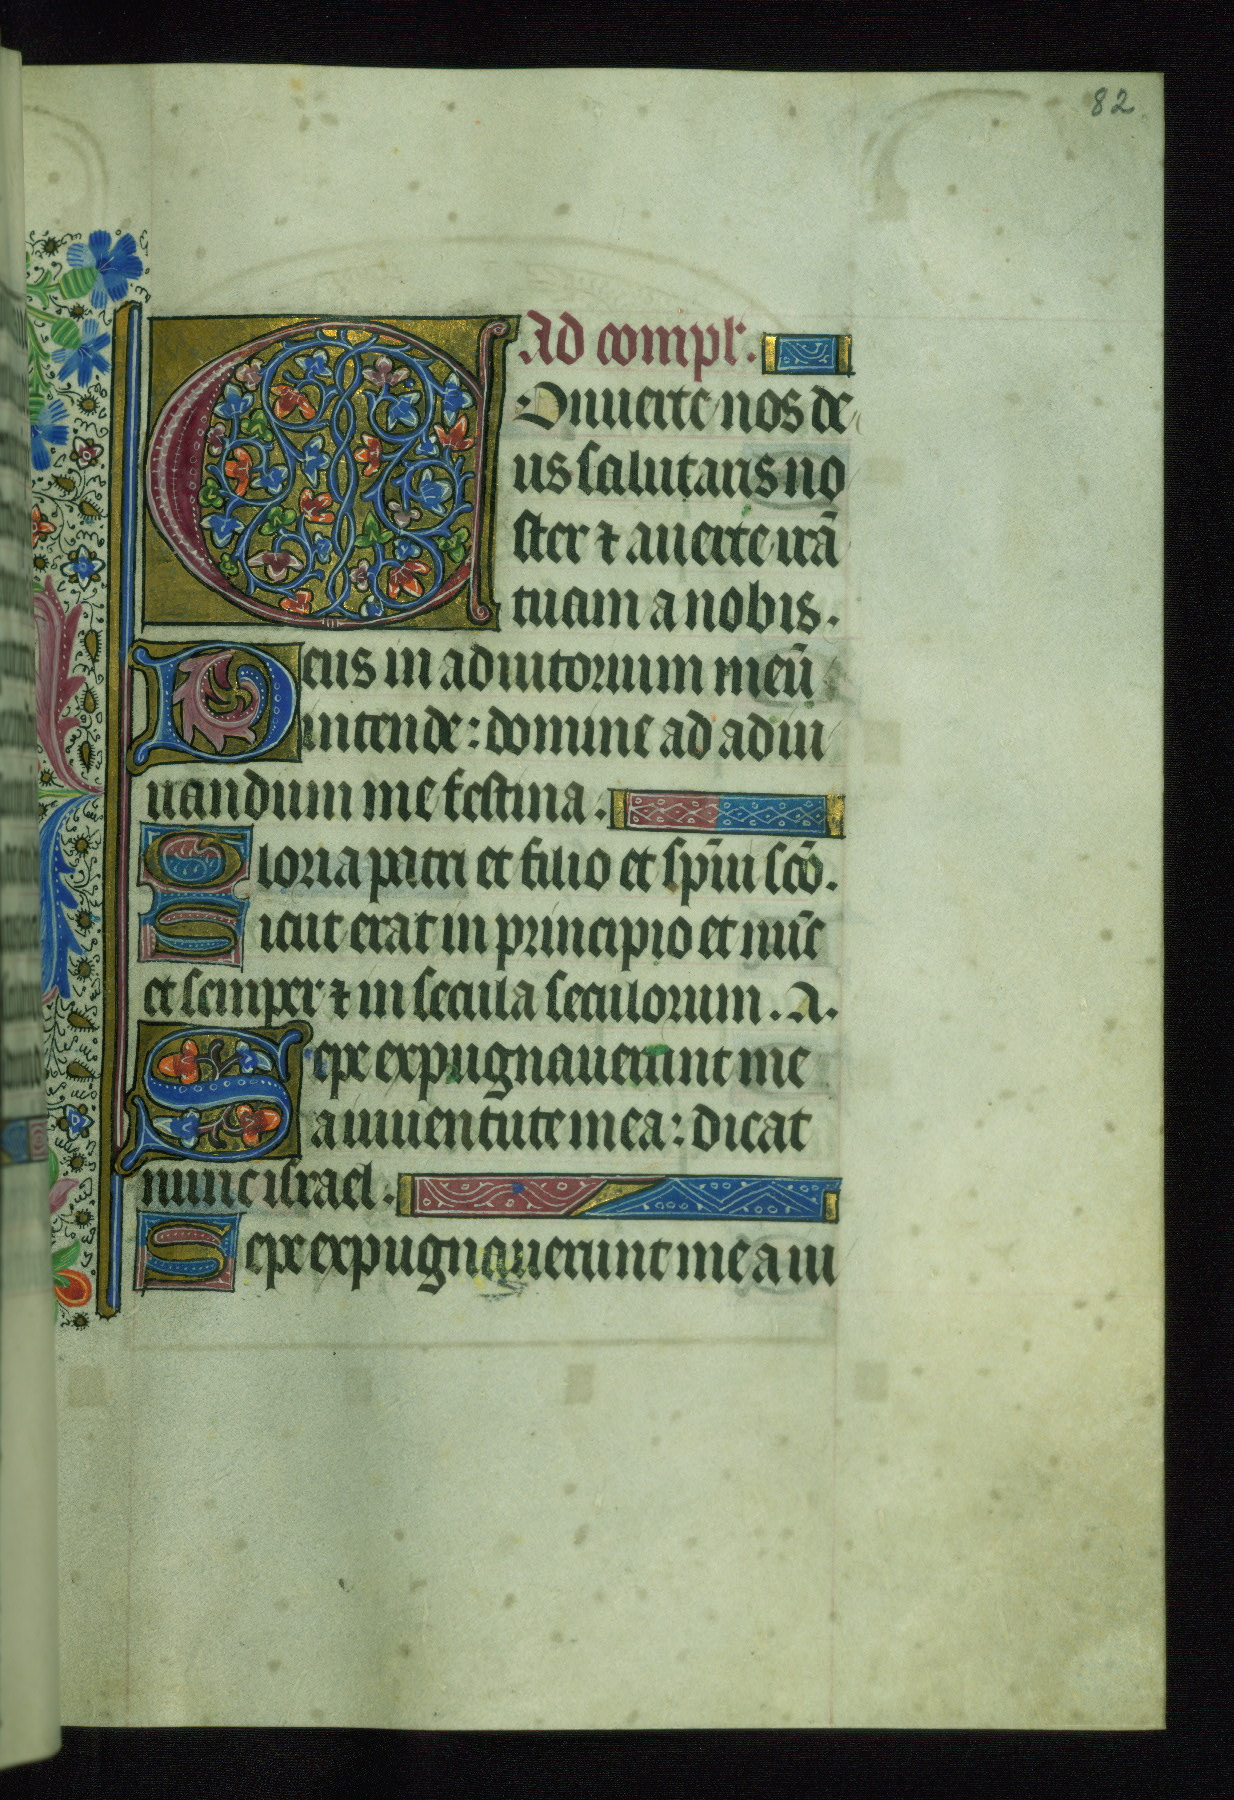 82
Ad compl'.
COnuerte nos de
us salutaris no
ster ⁊ auerte irā
tuam a nobis.
Deus in adiutorium meū
intende: domine ad adiu
uandum me festina.
Gloria patri et filio et sp̄iu scō.
Sicut erat in principio et nūc
et semper ⁊ in secula seculorum. A.
Sepe expugnauerunt me
a iuuentute mea: dicat
nunc israel.
Sepe expugnauerunt me a iu